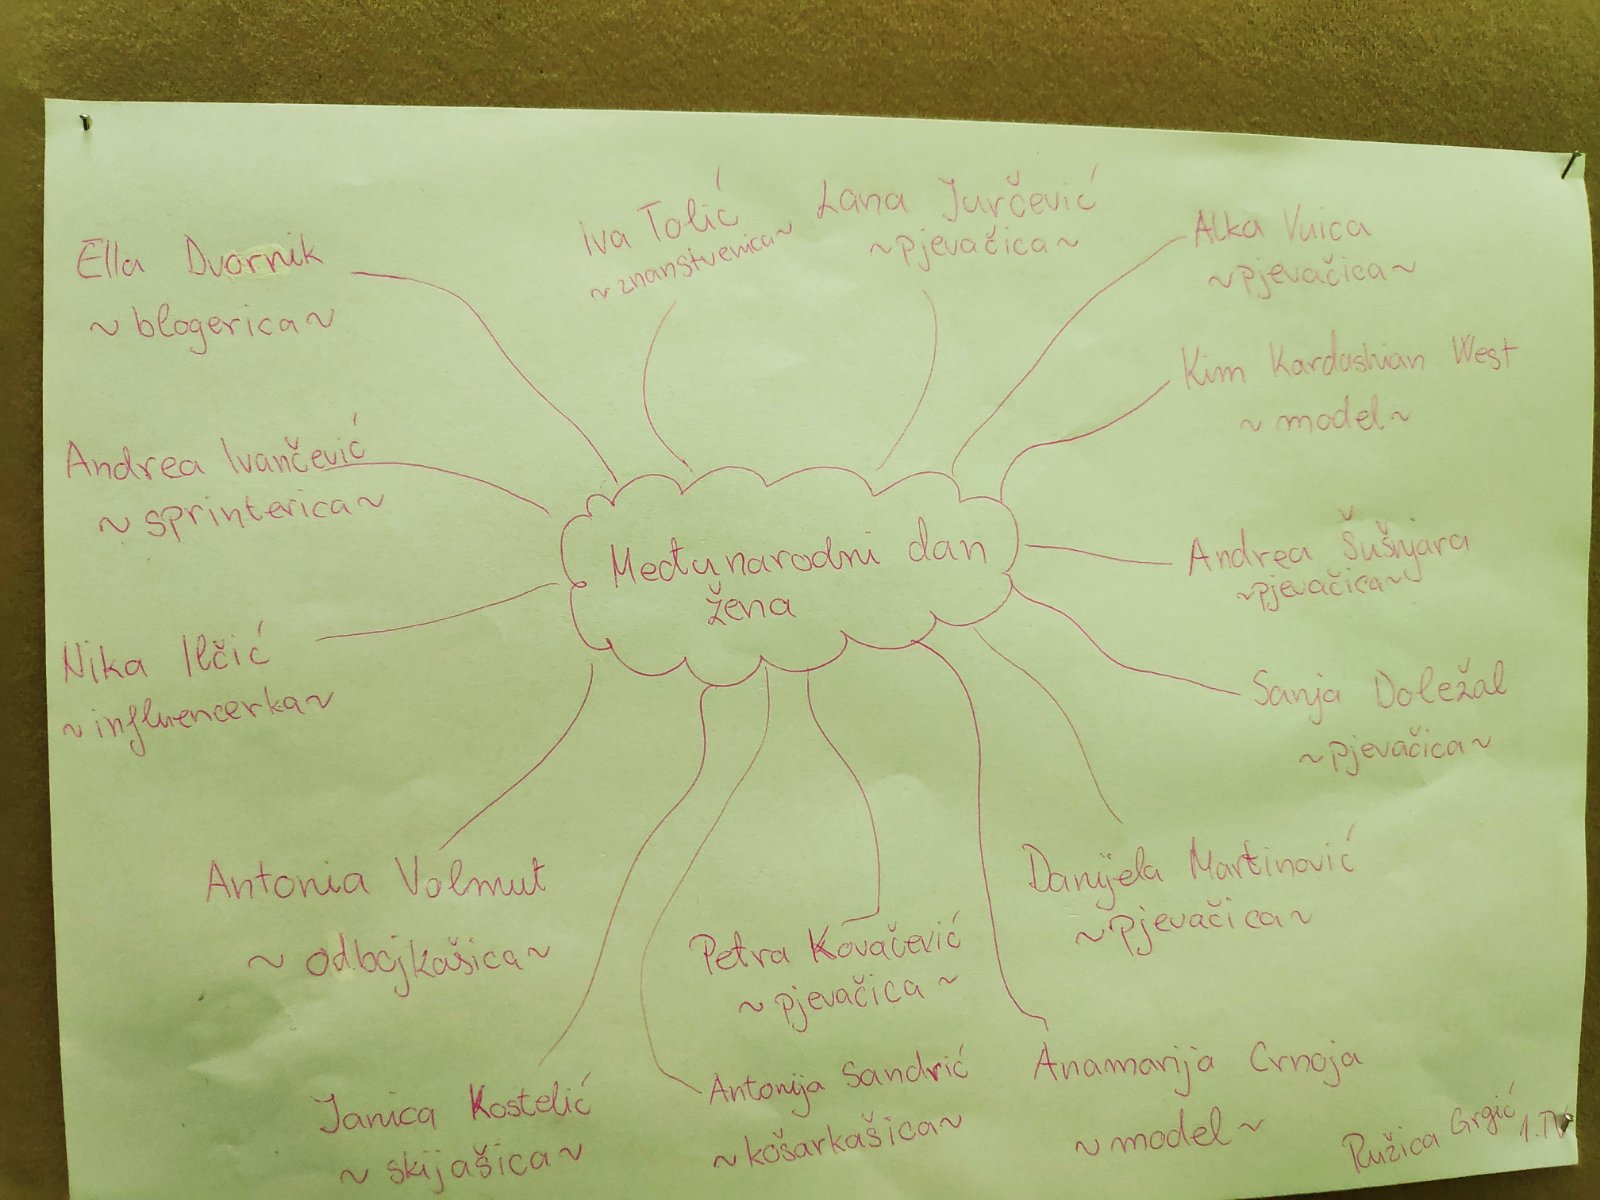 Međunarodni dan
žena
Ella Dvornik
~ blogerica ~
Iva Tolić
~ znanstvenica ~
Lana Jurčević
~ pjevačica ~
Alka Vuica
~ pjevačica ~
Kim Kardashian West
~ model ~
Andrea Ivančević
~ sprinterica ~
Andrea Šušnjara
~ pjevačica ~
Nika Ilčić
~ influencerka ~
Sanja Doležal
~ pjevačica ~
Antonia Volmut
~ odbojkašica ~
Danijela Martinović
~ pjevačica ~
Petra Kovačević
~ pjevačica ~
Janica Kostelić
~ skijašica ~
Antonija Sandrić
~ košarkašica ~
Anamarija Crnoja
~ model ~
Ružica Grgić